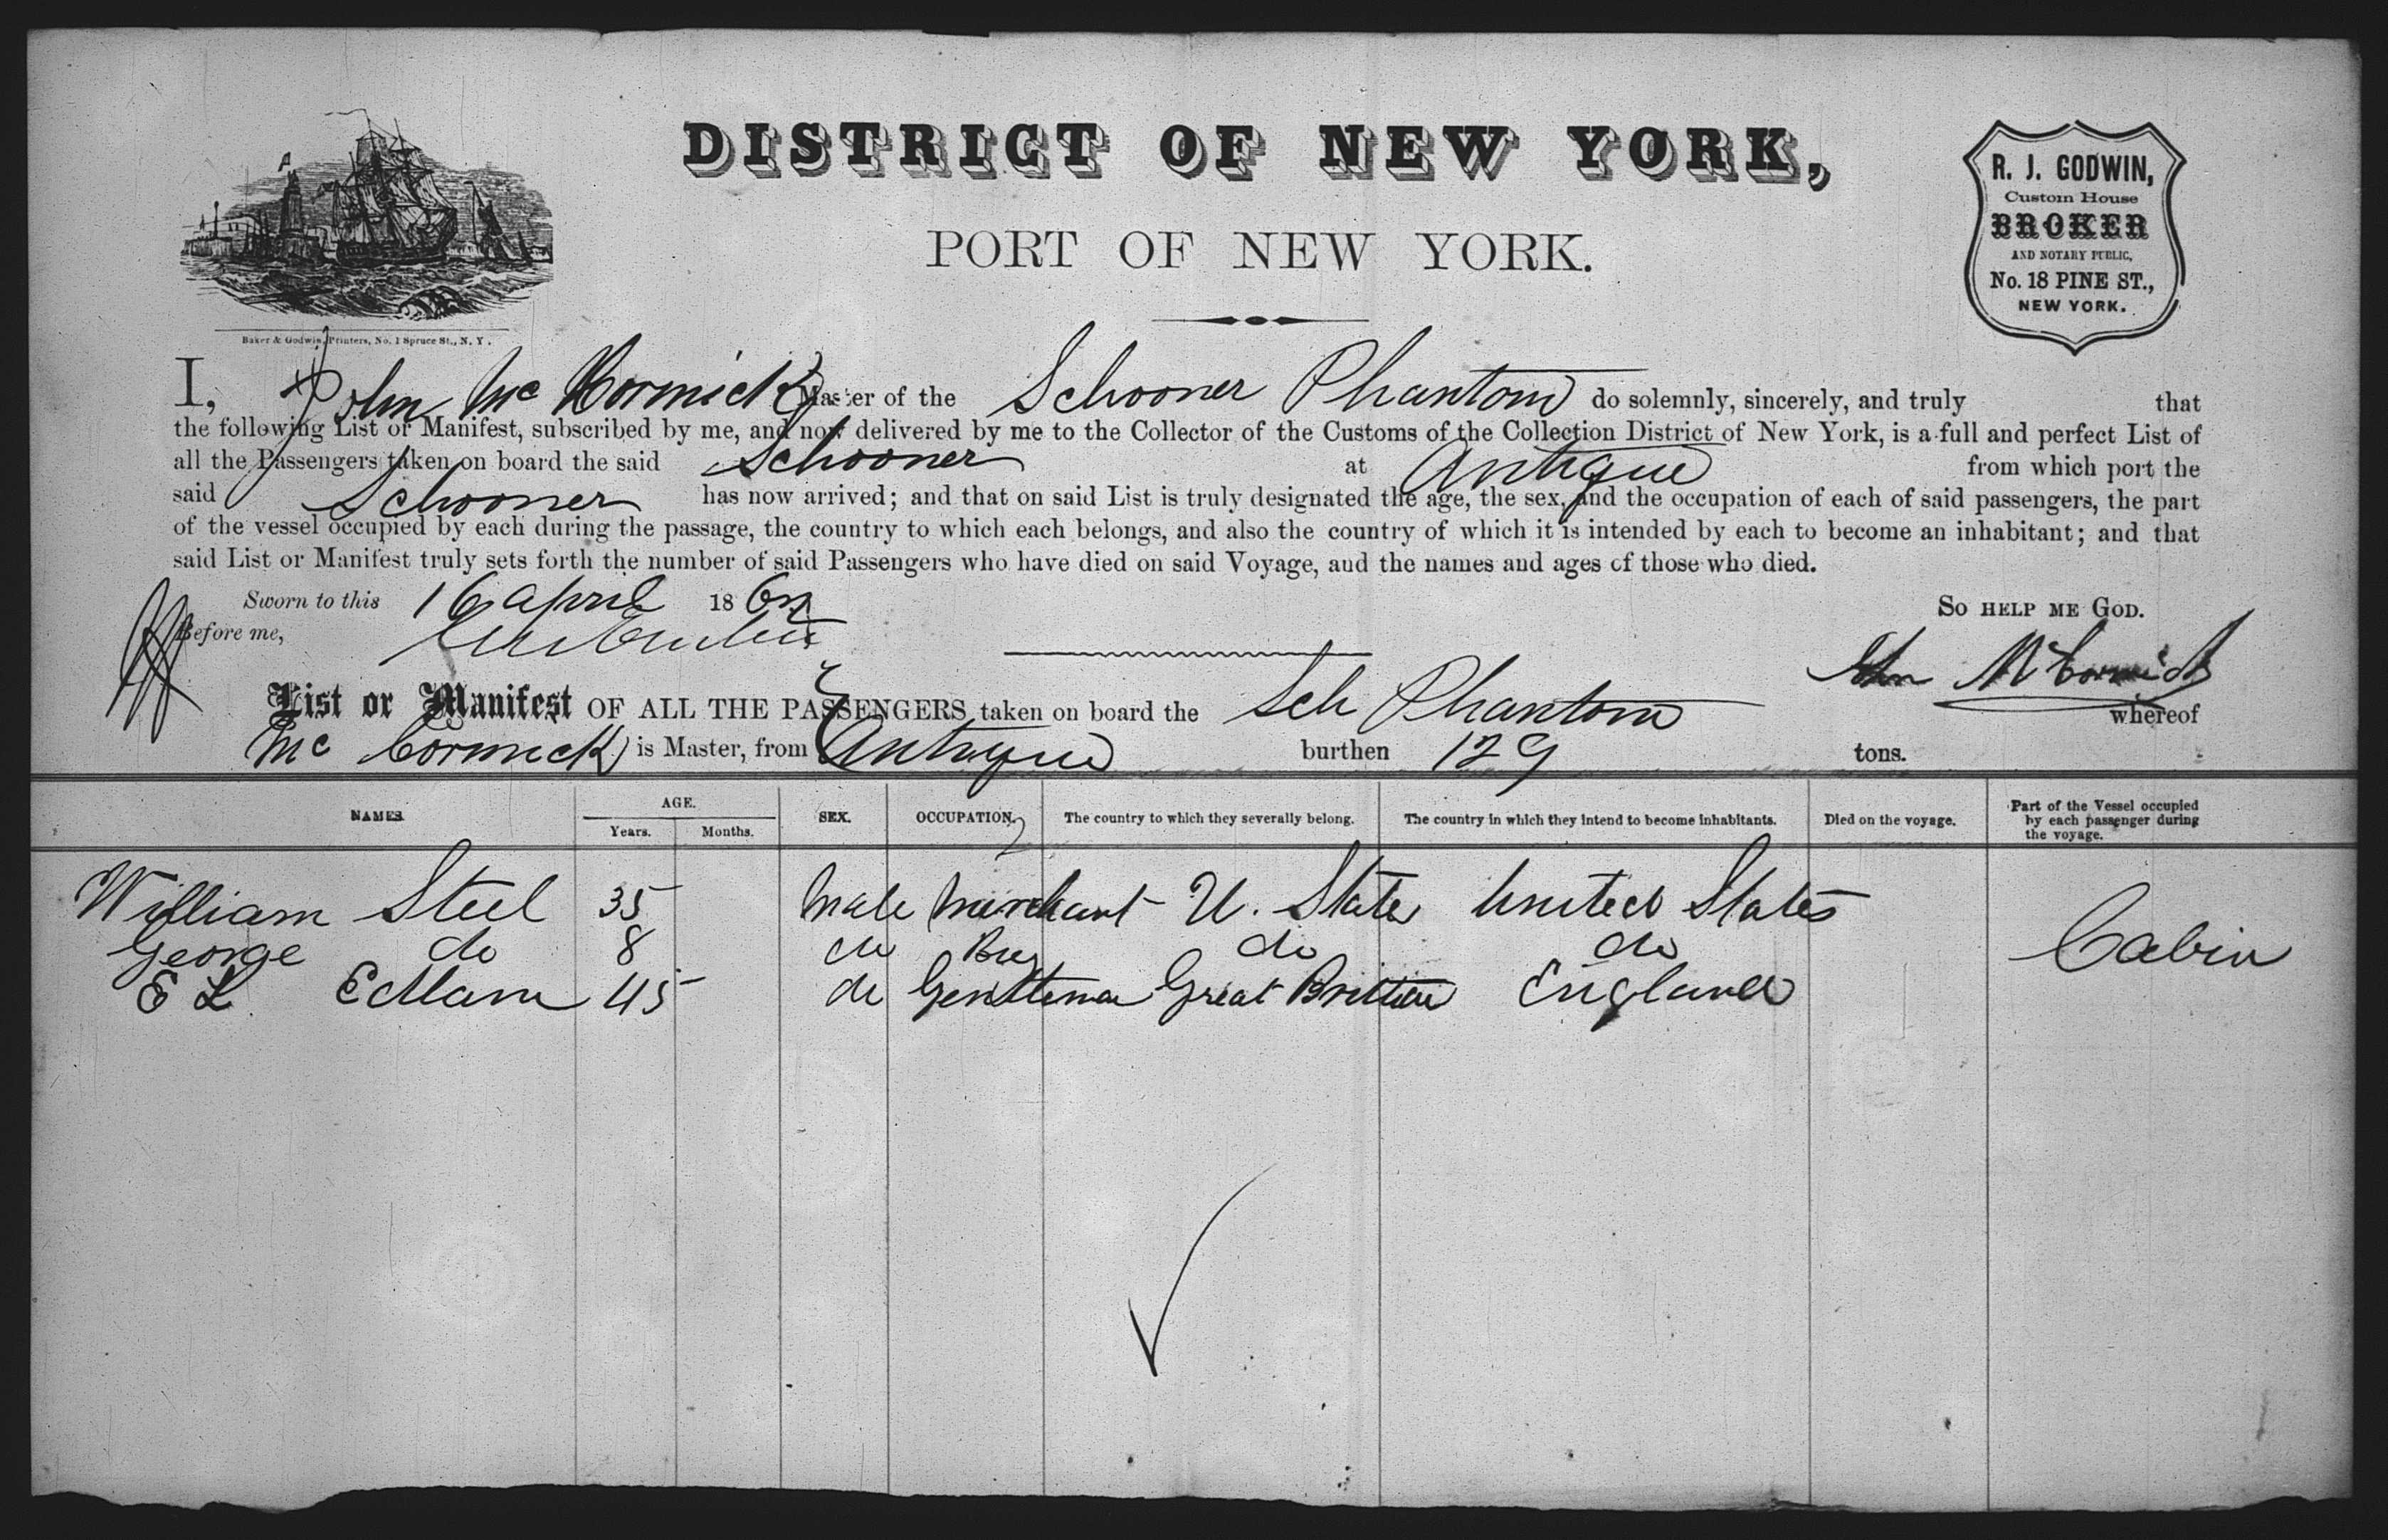 DISTRICT OF NEW YORK,
PORT OF NEW YORK.
R. J. GODWIN,
Custom House
BROKER
AND NOTARY PUBLIC,
No. 18 PINE ST.,
NEW YORK.
Baker & Godwin, Printers, No. 1 Spruce St., N. Y.
I, John Mc Cormick Master of the Schooner Phantom do solemnly, sincerely, and truly that
the following List or Manifest, subscribed by me, and now delivered by me to the Collector of the Customs of the Collection District of New York, is a full and perfect List of
all the Passengers taken on board the said Schooner at Antigue from which port the
said Schooner has now arrived; and that on said List is truly designated the age, the sex, and the occupation of each of said passengers, the part
of the vessel occupied by each during the passage, the country to which each belongs, and also the country of which it is intended by each to become an inhabitant; and that
said List or Manifest truly sets forth the number of said Passengers who have died on said Voyage, and the names and ages of those who died.
Sworn to this 16 April 186 So HELP ME GOD.
Before me,
John McCormick
List or Manifest OF ALL THE PASSENGERS taken on board the Sch Phantom whereof
Mc Cormick is Master, from Antigue burthen 129 tons.
NAMES AGE. Years. Months. SEX. OCCUPATION. The country to which they severally belong. The country in which they intend to become inhabitants. Died on the voyage. Part of the Vessel occupied by each passenger during the voyage.
William Steel 35 Male Merchant U. State United States
George do 8 do Boy do do Cabin
E L Edlam 45 do Gentleman Great Brittain England